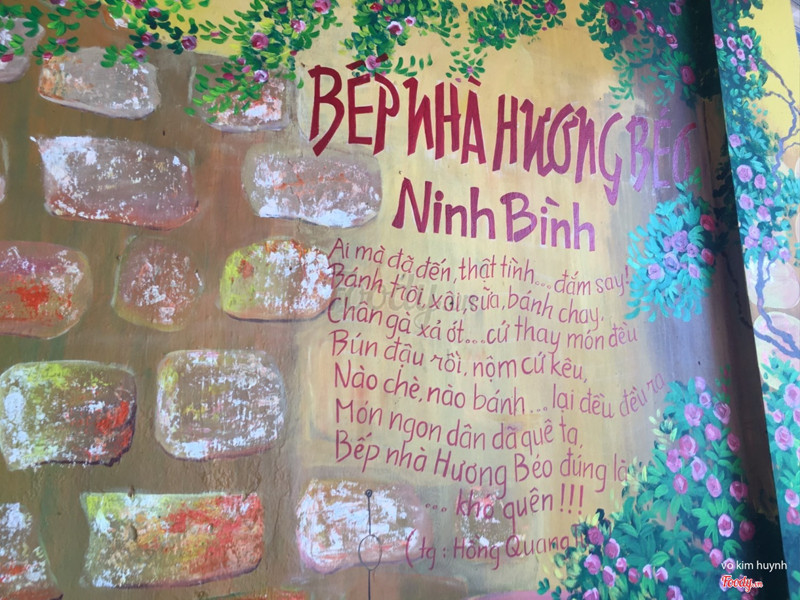 BẾP NHÀ HƯƠNG BÉO
Ninh Bình
Ai mà đã đến, thật tình... đắm say!
Bánh trôi, xôi, sữa, bánh chay.
Chân gà xả ớt... cứ thay món đều
Bún đậu rồi, nộm cứ kêu,
Nào chè, nào bánh... lại đều đều ra
Món ngon dân dã quê ta,
Bếp nhà Hương Béo đúng là
... khó quên!!!
(tg: Hồng Quang
vo kim huynh
Foody.vn